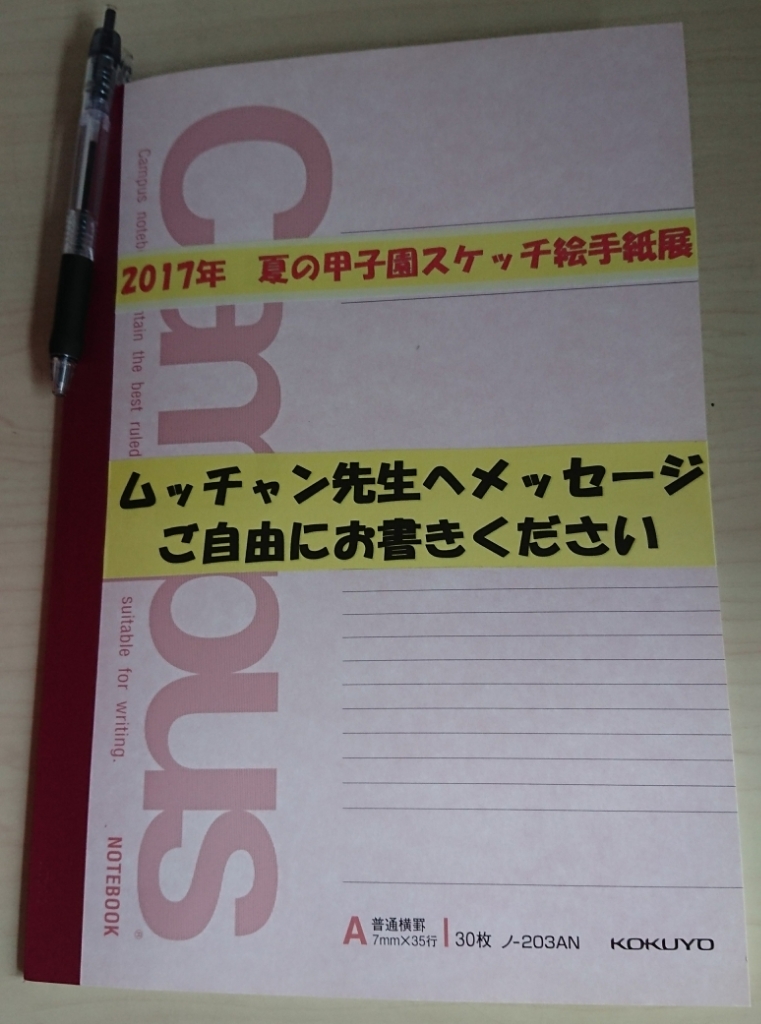 Campus
Campus noteb
ntain the best ruled
suitable for writing.
NOTEBOOK
®
2017年 夏の甲子園スケッチ絵手紙展
ムッチャン先生へメッセージ
ご自由にお書きください
A 普通横罫 7mm×35行 30枚 ノ-203AN KOKUYO